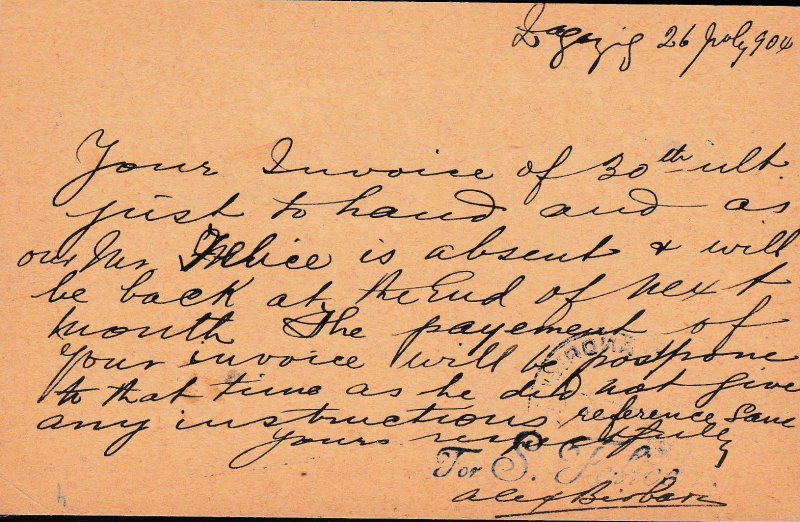 Zagazig 26 July 904
Your Invoice of 30th ult.
just to hand and as
our Mr Felice is absent & will
be back at the End of next
month The payement of
Your invoice will be postpone
to that time as he did not give
any instructions reference same
yours respectfully
For S.
Alex